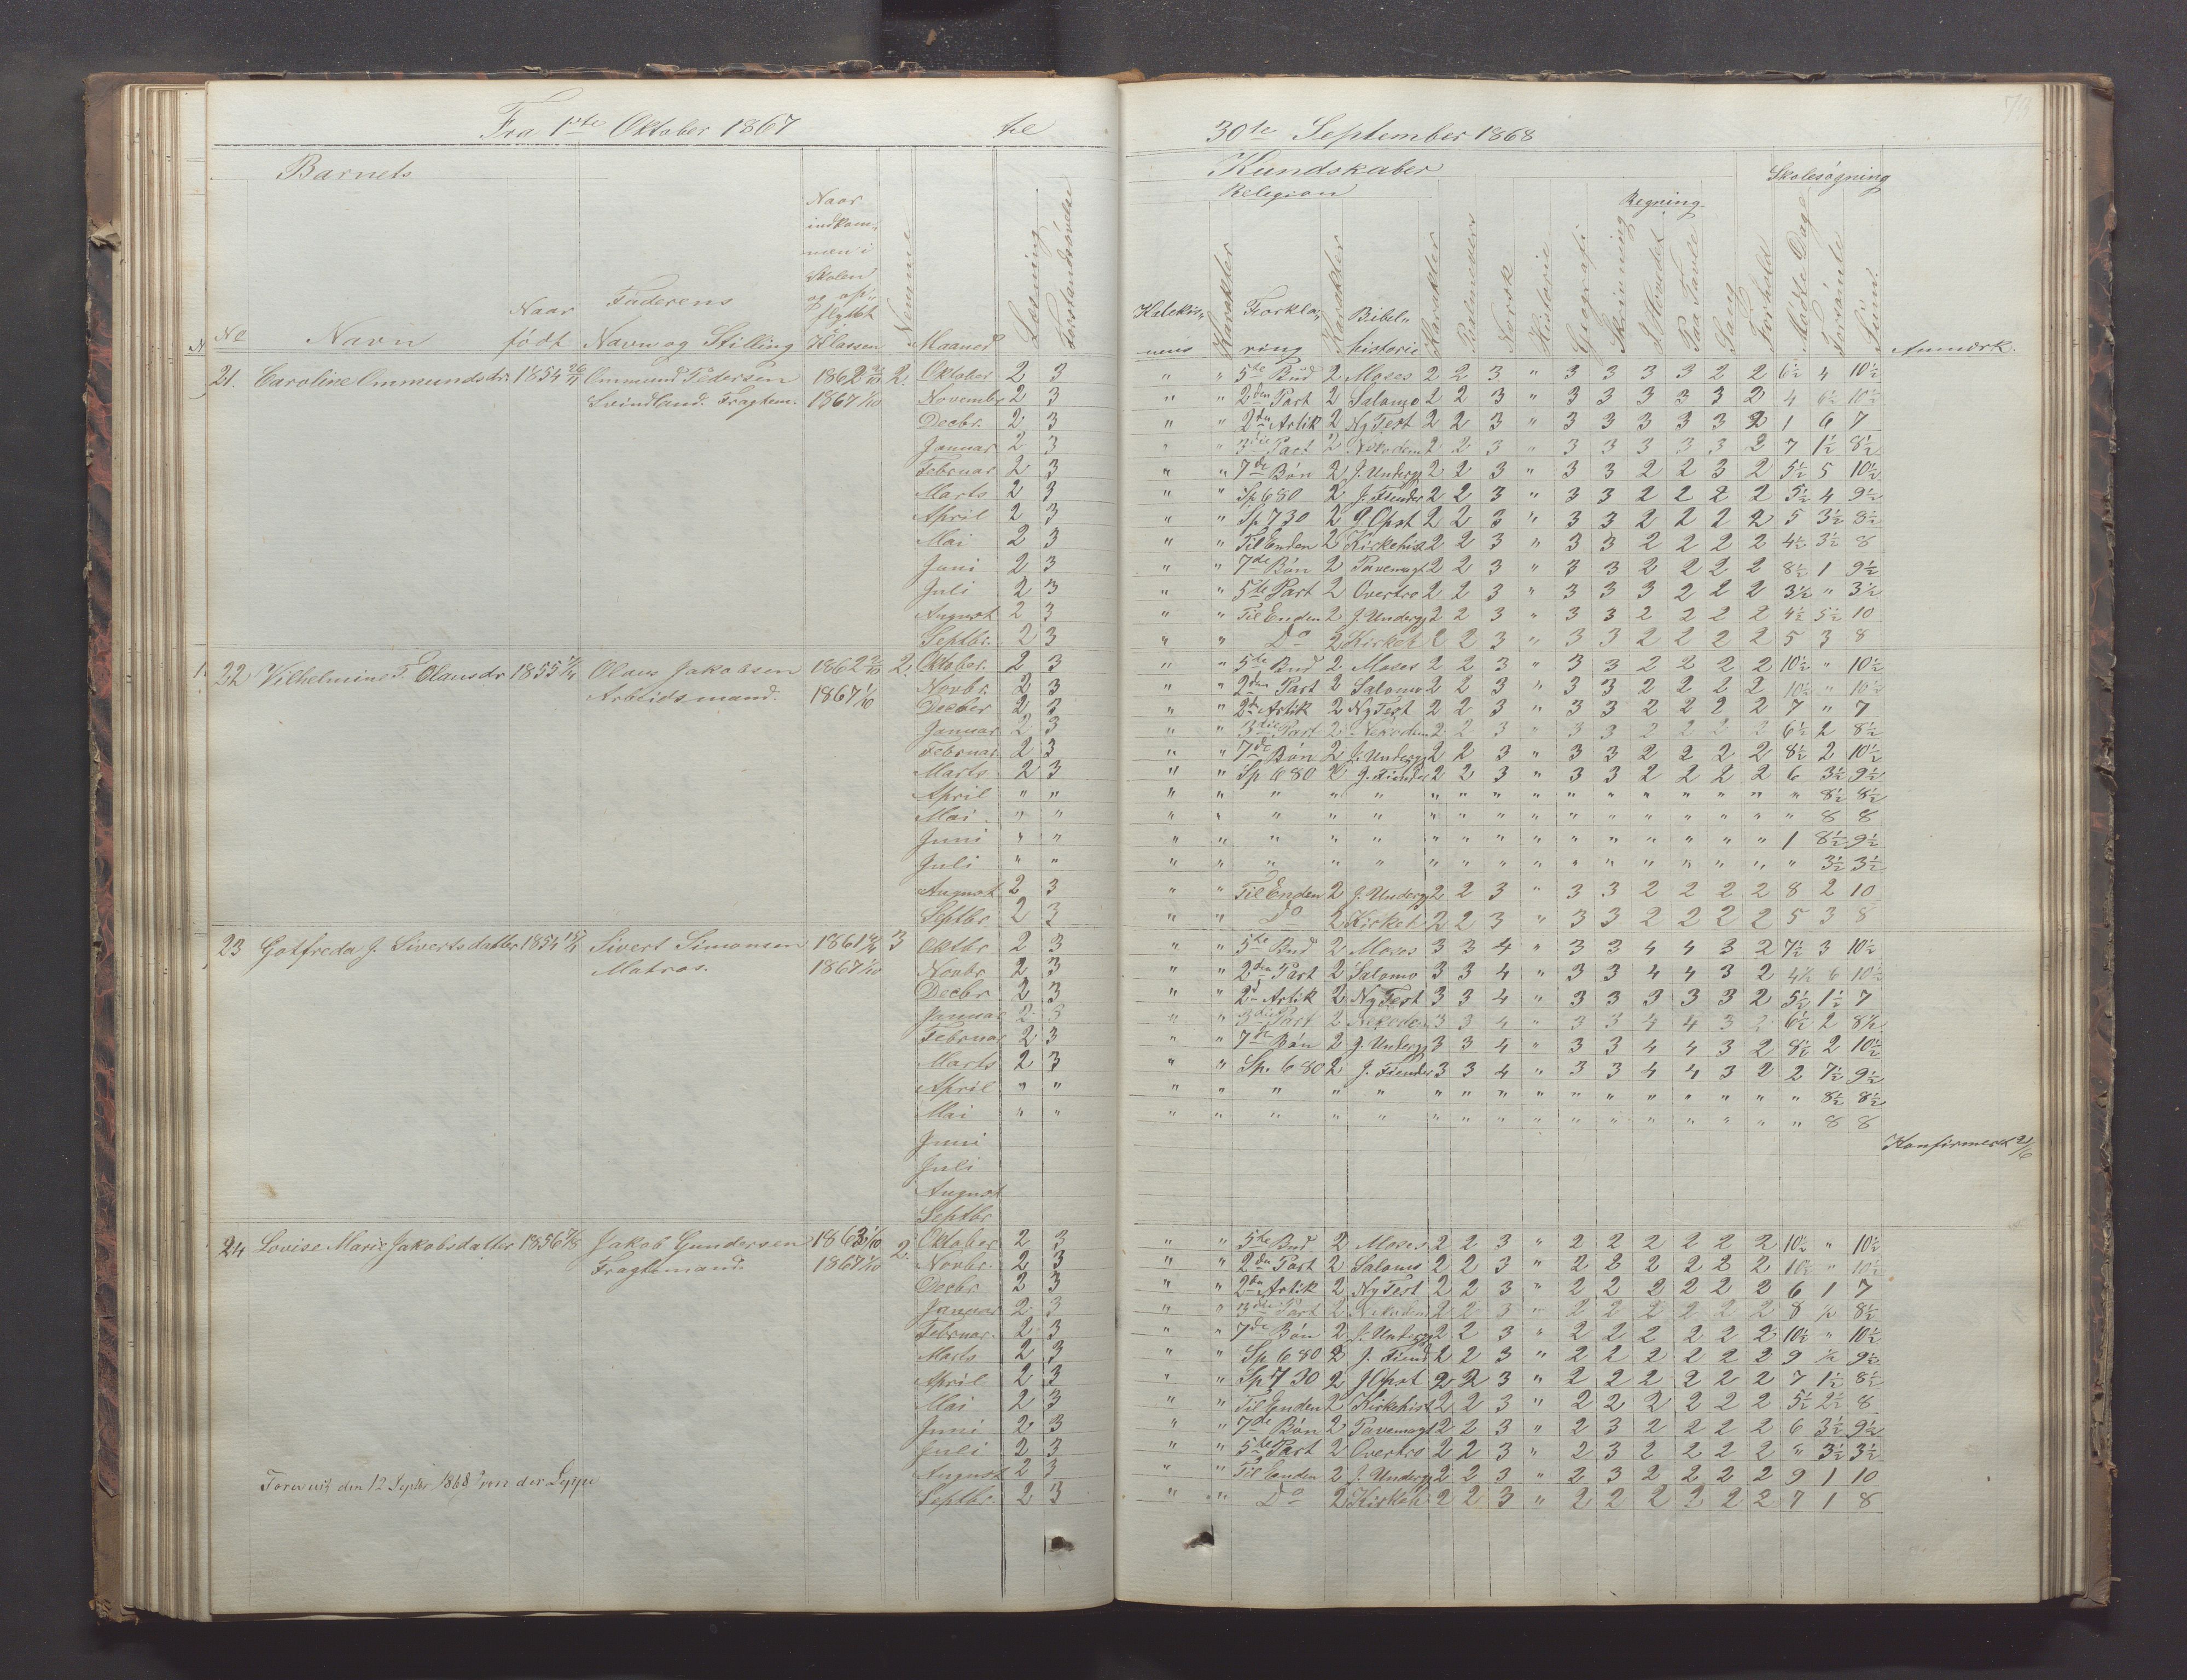 Fra 1ste Oktober 1867 til 30te September 1868
Barnets Kundskaber Skolesøgning
Religion Regning
No Navn Naar født Faderens Navn og Stilling Naar indkommen i Skolen og opflyttet i Klassen Nemme Maaned Læsning Forstandsøvelse Katekismus Karakter Forklaring Karakter Bibelhistorie Karakter Psalmevers Norsk Historie Geografi Skrivning I Hovedet Paa Tavle Sang Forhold Mødte Dage Forsømte Sum Anmærk.
21. Caroline Ommundsdr 1854 Ommund Pedersen 1862 2. Oktober 2 3 " " 5te Bud 2 Moses 2 2 3 " 3 3 3 3 2 2 6½ 4 10½
Svindland. Fragtem. 1867 1/10 Novembr 2 3 " " 2den Part 2 Salomo 2 2 3 " 3 3 3 3 3 2 4 6½ 10½
Decbr. 2 3 " " 2den Artik 2 Ny Test 2 2 3 " 3 3 3 3 3 2 1 6 7
Januar 2 3 " " 3die Part 2 Nikodem 2 2 3 " 3 3 3 3 3 2 7 1½ 8½
Februar 2 3 " " 7de Bøn 2 J. Underg 2 2 3 " 3 3 2 2 3 2 5½ 5 10½
Marts 2 3 " " Sp 680 2 J. Fiender 2 2 3 " 3 3 2 2 2 2 5½ 4 9½
April 2 3 " " Sp 730 2 J Opst 2 2 3 " 3 3 2 2 2 2 5 3½ 8½
Mai 2 3 " " Til Enden 2 Kirkehist 2 2 3 " 3 3 2 2 2 2 4½ 3½ 8
Juni 2 3 " " 7de Bøn 2 Pavemagt 2 2 3 " 3 3 2 2 2 2 8½ 1 9½
Juli 2 3 " " 5te Part 2 Overtro 2 2 3 " 3 3 3 2 2 2 3½ " 3½
August 2 3 " " Til Enden 2 J. Underg 2 2 3 " 3 3 2 2 2 2 4½ 5½ 10
Septbr. 2 3 " " Do 2 Kirkeh 2 2 3 " 3 3 2 2 2 2 5 3 8
22 Vilhelmine T. Olausdr 1855 Olaus Jakobsen 1862 2. Oktober. 2 3 " " 5te Bud 2 Moses 2 2 3 " 3 3 2 2 2 2 10½ " 10½
Arbeidsmand. 1867 1/10 Novbr. 2 3 " " 2den Part 2 Salomo 2 2 3 " 3 3 2 2 2 2 10½ " 10½
Decbr 2 3 " " 2den Artik 2 Ny Test 2 2 3 " 3 3 2 2 2 2 7 " 7
Januar 2 3 " " 3die Part 2 Nikodem 2 2 3 " 3 3 2 2 2 2 6½ 2 8½
Februar 2 3 " " 7de Bøn 2 J. Underg 2 2 3 " 3 3 2 2 2 2 8½ 2 10½
Marts 2 3 " " Sp 680 2 J. Fiender 2 2 3 " 3 3 2 2 2 2 6 3½ 9½
April " " " " " " " " " " " " " " " " " " 8½ 8½
Mai " " " " " " " " " " " " " " " " " " 8 8
Juni " " " " " " " " " " " " " " " " " 1 8½ 9½
Juli " " " " " " " " " " " " " " " " " " 3½ 3½
August 2 3 " " Til Enden 2 J. Underg 2 2 3 " 3 3 2 2 2 2 8 2 10
Septbr 2 3 " " Do 2 Kirkeh 2 2 3 " 3 3 2 2 2 2 5 3 8
23 Gotfreda J. Sivertsdatter 1854 Sivert Simonsen 1861 3 Oktbr 2 3 " " 5te Bud 2 Moses 3 3 4 " 3 3 4 4 3 2 7½ 3 10½
Matros. 1867 1/10 Novbr 2 3 " " 2den Part 2 Salomo 3 3 4 " 3 3 4 4 3 2 4½ 6 10½
Decbr 2 3 " " 2d Artik 2 Ny Test 3 3 4 " 3 3 3 3 3 2 5½ 1½ 7
Januar 2 3 " " 3die Part 2 3 3 4 " 3 3 4 4 3 2 6½ 2 8½
Februar 2 3 " " 7de Bøn 2 J. Underg 3 3 4 " 3 3 4 4 3 2 8½ 2 10½
Marts 2 3 " " Sp. 680 2 J. Fiender 3 3 4 " 3 3 4 4 3 2 2 7½ 9½
April " " " " " " " " " " " " " " " " " " 8½ 8½
Mai " " " " " " " " " " " " " " " " " " 8 8
Juni Konfirmert 21/6
Juli
August
Septbr
24 Lovise Marie Jakobsdatter 1856 Jakob Gundersen 1863 1/10 2. Oktober 2 3 " " 5te Bud 2 Moses 2 2 3 " 2 2 2 2 2 2 10½ " 10½
Fragtemand. 1867 1/10 Novbr. 2 3 " " 2den Part 2 Salomo 2 2 3 " 2 2 2 2 2 2 10½ " 10½
Decbr 2 3 " " 2den Artik 2 Ny Test 2 2 3 " 2 2 2 2 2 2 6 1 7
Januar 2 3 " " 3die Part 2 Nikodem 2 2 3 " 2 2 2 2 2 2 8 ½ 8½
Februar. 2 3 " " 7de Bøn 2 J. Underg 2 2 3 " 2 2 2 2 2 2 10½ " 10½
Marts 2 3 " " Sp 680 2 J. Fiend 2 2 3 " 2 2 2 2 2 2 9 ½ 9½
April 2 3 " " Sp 730 2 J Opst 2 2 3 " 2 2 2 2 2 2 7 1½ 8½
Mai 2 3 " " Til Enden 2 Kirkehist 2 2 3 " 2 2 2 2 2 2 5½ 2½ 8
Juni 2 3 " " 7de Bøn 2 Pavemagt 2 2 3 " 2 3 2 2 2 2 6 3½ 9½
Juli 2 3 " " 5te Part 2 Overtro 2 2 3 " 2 3 2 2 2 2 " 3½ 3½
August 2 3 " " Til Enden 2 J. Underg 2 2 3 " 2 3 2 2 2 2 9 1 10
Forevist den 12 Septbr 1868 Septbr. 2 3 " " Do 2 Kirkeh. 2 2 3 " 2 2 2 2 2 2 7 1 8